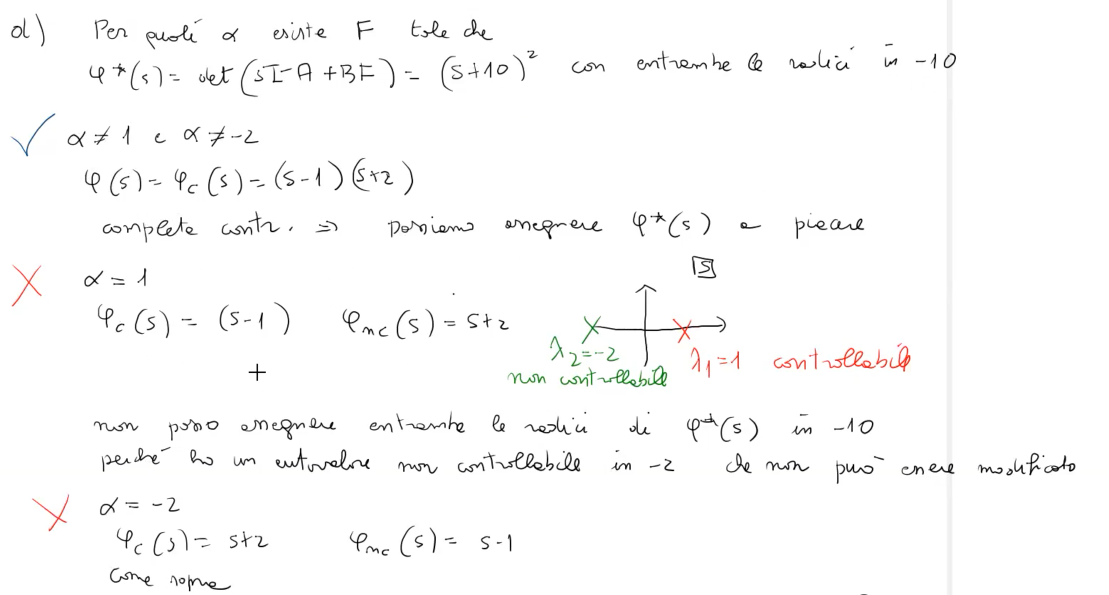 d) Per quali α esiste F tale che
φ*(s) = det(sI-A+BF) = (s+10)² con entrambe le radici in -10
α ≠ 1 e α ≠ -2
φ(s) = φc(s) = (s-1)(s+2)
completa contr. ⇒ possiamo assegnare φ*(s) a piacere
S
α = 1
φc(s) = (s-1) φnc(s) = s+2
λ₂=-2
non controllabile
λ₁=1 controllabile
+
non posso assegnare entrambe le radici di φ*(s) in -10
perché ho un autovalore non controllabile in -2 che non può essere modificato
α = -2
φc(s) = s+2 φnc(s) = s-1
Come sopra